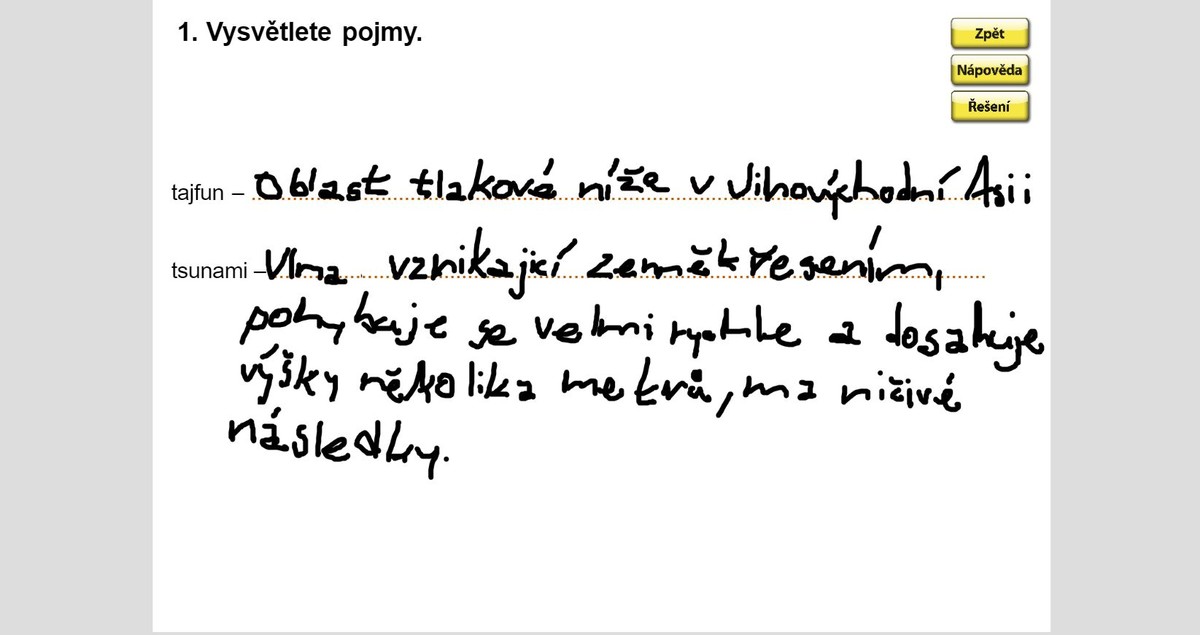 1. Vysvětlete pojmy.
Zpět
Nápověda
Řešení
tajfun – Oblast tlakové níže v Jihovýchodní Asii
tsunami – Vlna vznikající zemětřesením,
pohybuje se velmi rychle a dosahuje
výšky několika metrů, ma ničivé
následky.